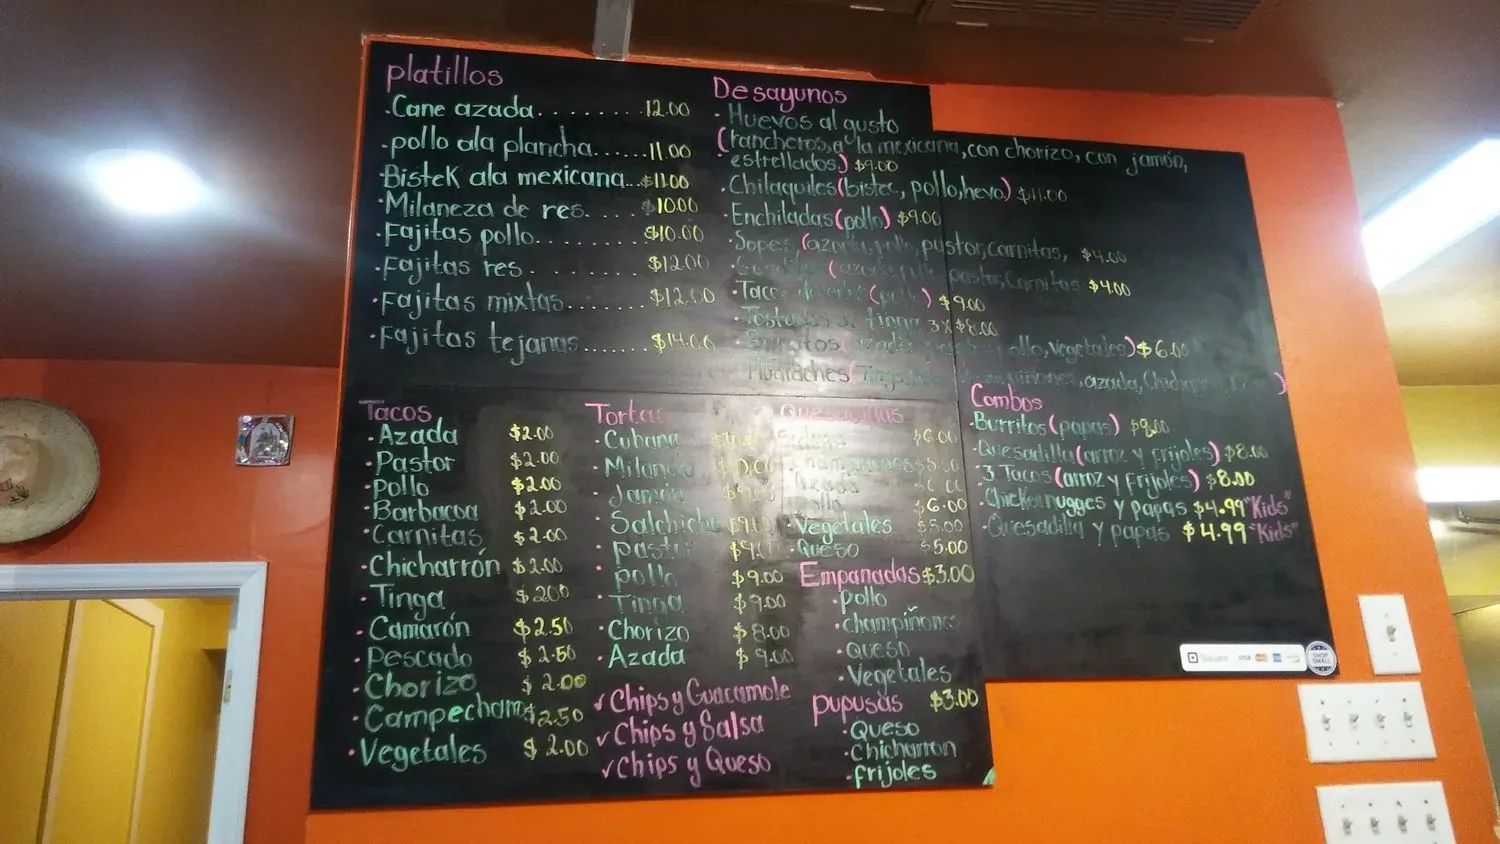 platillos
·Cane azada........12.00
·pollo ala plancha......11.00
·Bistek ala mexicana..$11.00
·Milaneza de res.....$10.00
·Fajitas pollo........$10.00
·Fajitas res........$12.00
·Fajitas mixtas.......$12.00
·Fajitas tejanas.......$14.00
Desayunos
·Huevos al gusto
(rancheros, a la mexicana, con chorizo, con jamón,
estrellados) $9.00
·Chilaquiles (bistec, pollo, hevo) $11.00
·Enchiladas (pollo) $9.00
·Sopes (azada, pollo, pustor, carnitas, $4.00
pastor, Carnitas $4.00
·Tacos (pollo) $9.00
·Tostadas de tinga 3x$8.00
·Burritos azada pollo, vegetales) $6.00
Huaraches (Tinga, azada,
Tacos
·Azada $2.00
·Pastor $2.00
·Pollo $2.00
·Barbacoa $2.00
·Carnitas $2.00
·Chicharrón $2.00
·Tinga $200
·Camarón $2.50
·Pescado $2.50
·Chorizo $2.00
·Campechano $2.50
·Vegetales $2.00
Tortas
·Cubana
·Milanesa
·Jamón $9.00
·Salchicha $9.00
·pastor $9.00
·pollo $9.00
·Tinga $9.00
·Chorizo $8.00
·Azada $9.00
✓Chips y Guacamole
✓Chips y Salsa
✓Chips y Queso
Quesadillas
$6.00
Champiñones $5.00
Azada
pollo $6.00
·Vegetales $5.00
·Queso $5.00
Empanadas $3.00
·pollo
·champiñones
·Queso
·Vegetales
pupusas $3.00
·Queso
·Chicharron
·frijoles
Combos
·Burritos (papas) $9.00
·Quesadilla (arroz y frijoles) $8.00
·3 Tacos (arroz y frijoles) $8.00
·Chicken nugges y papas $4.99 "Kids"
·Quesadilla y papas $4.99 "Kids"
Square VISA
SHOP SMALL